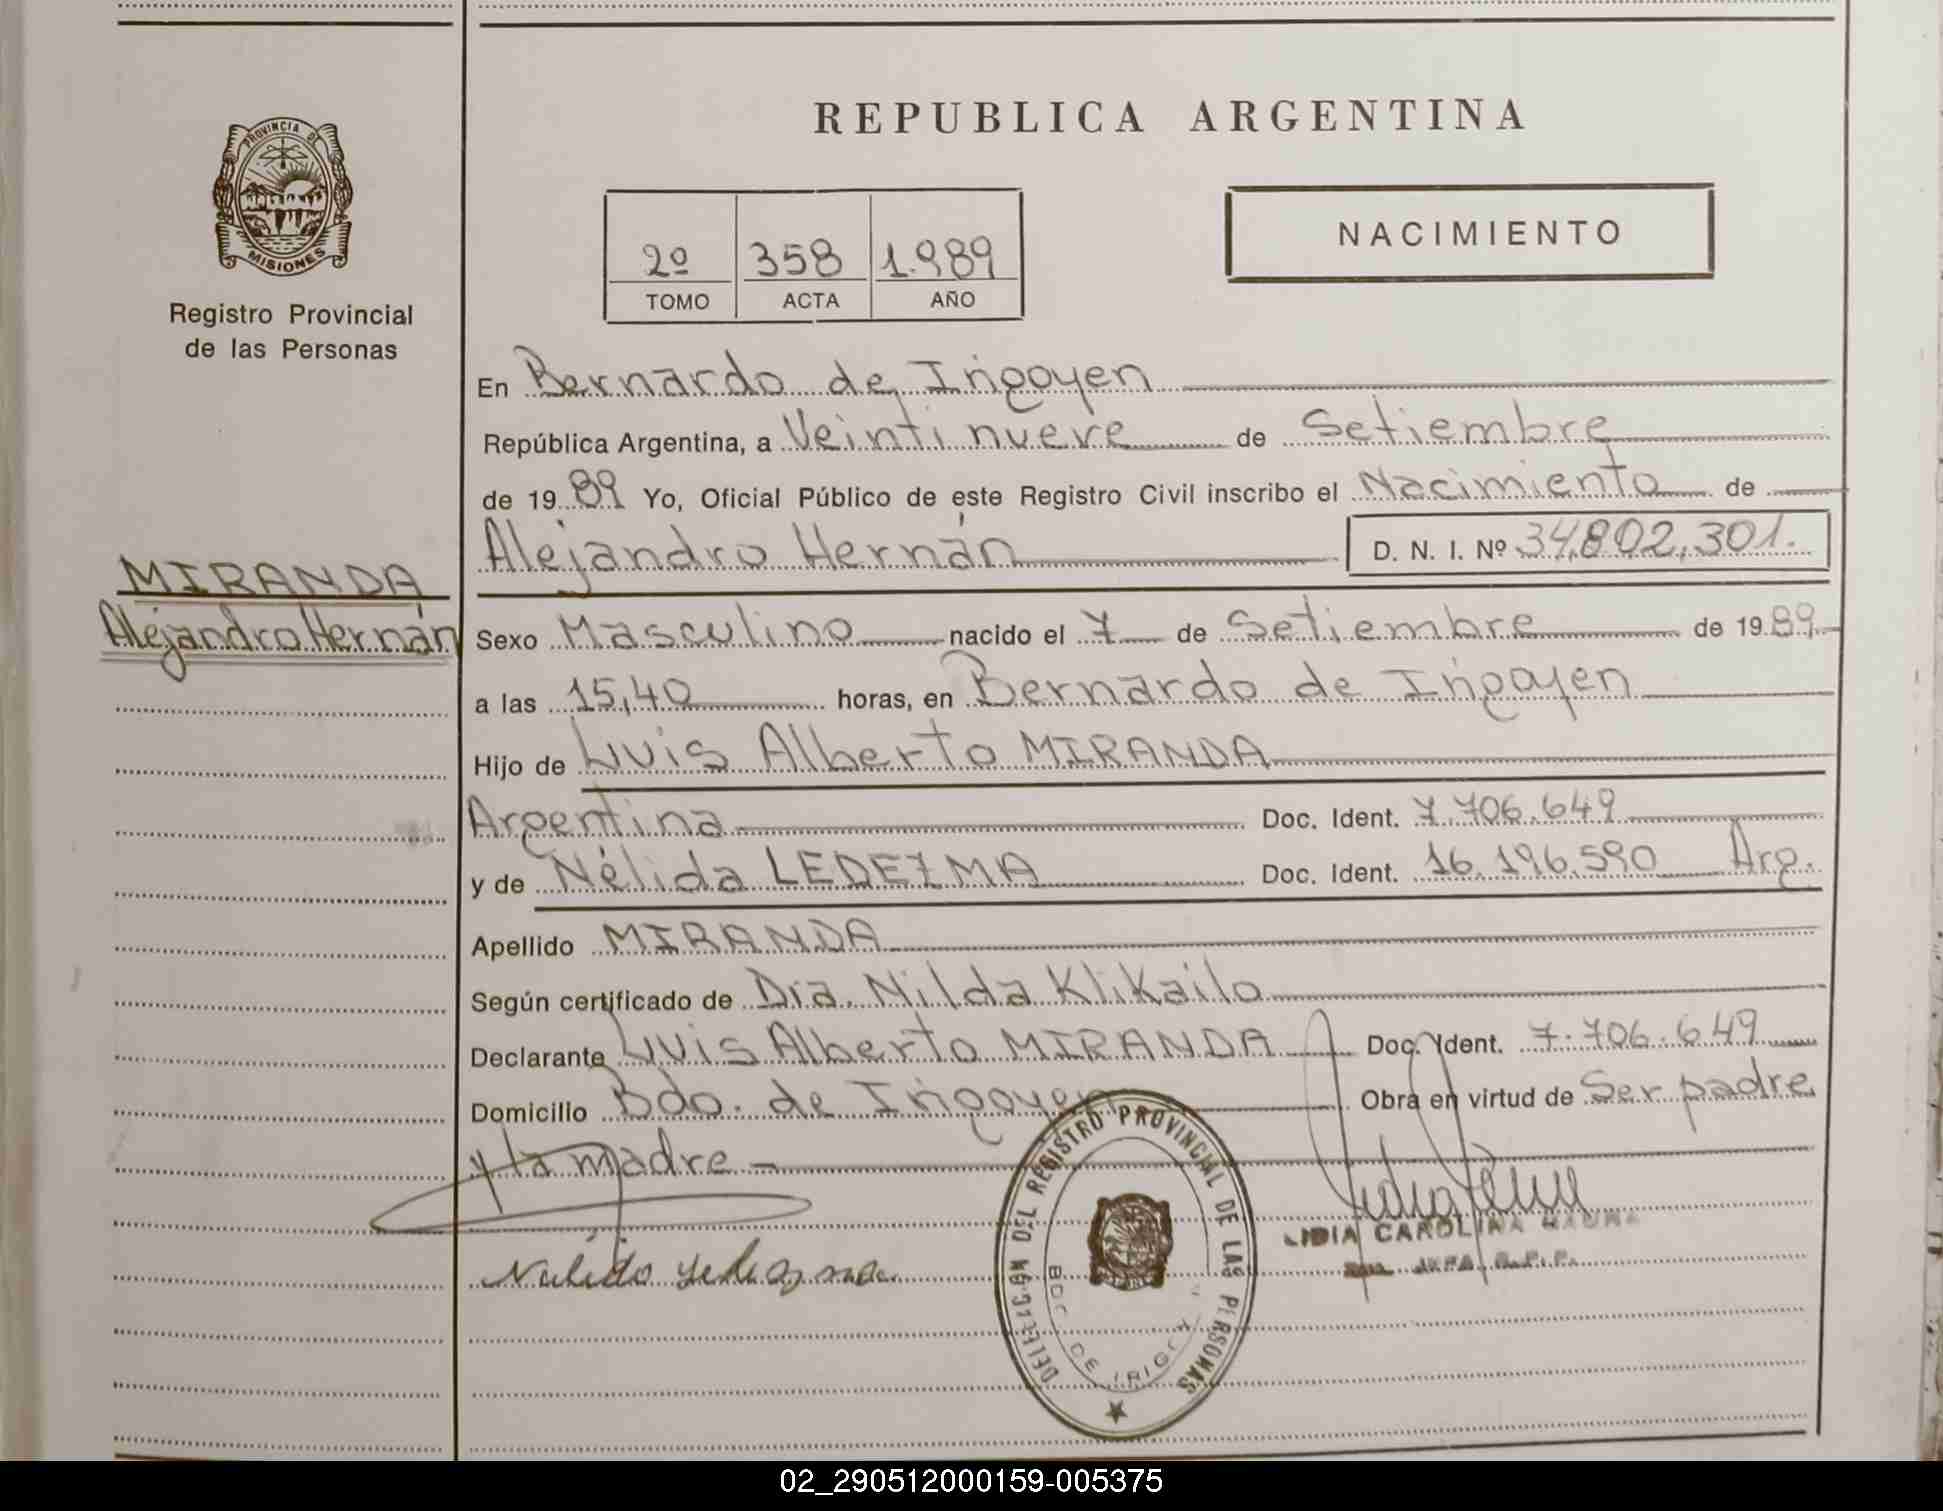 REPUBLICA ARGENTINA
PROVINCIA DE
MISIONES
Registro Provincial
de las Personas
2º 358 1.989
TOMO ACTA AÑO
NACIMIENTO
En Bernardo de Irigoyen
República Argentina, a Veinti nueve de Setiembre
de 19 89 Yo, Oficial Público de este Registro Civil inscribo el Nacimiento de
Alejandro Hernán D. N. I. Nº 34,802,301.
MIRANDA
Alejandro Hernán
Sexo Masculino nacido el 7 de Setiembre de 19 89
a las 15,40 horas, en Bernardo de Irigoyen
Hijo de Luis Alberto MIRANDA
Argentina Doc. Ident. 7.706.649
y de Nélida LEDEZMA Doc. Ident. 16.196.590 Arg.
Apellido MIRANDA
Según certificado de Dra. Nilda Klikailo
Declarante Luis Alberto MIRANDA Doc. Ident. 7.706.649
Domicilio Bdo. de Irigoyen Obra en virtud de Ser padre
y la madre
DELEGACION DEL REGISTRO PROVINCIAL DE LAS PERSONAS
BDO. DE IRIGOY
LIDIA CAROLINA
02_290512000159-005375